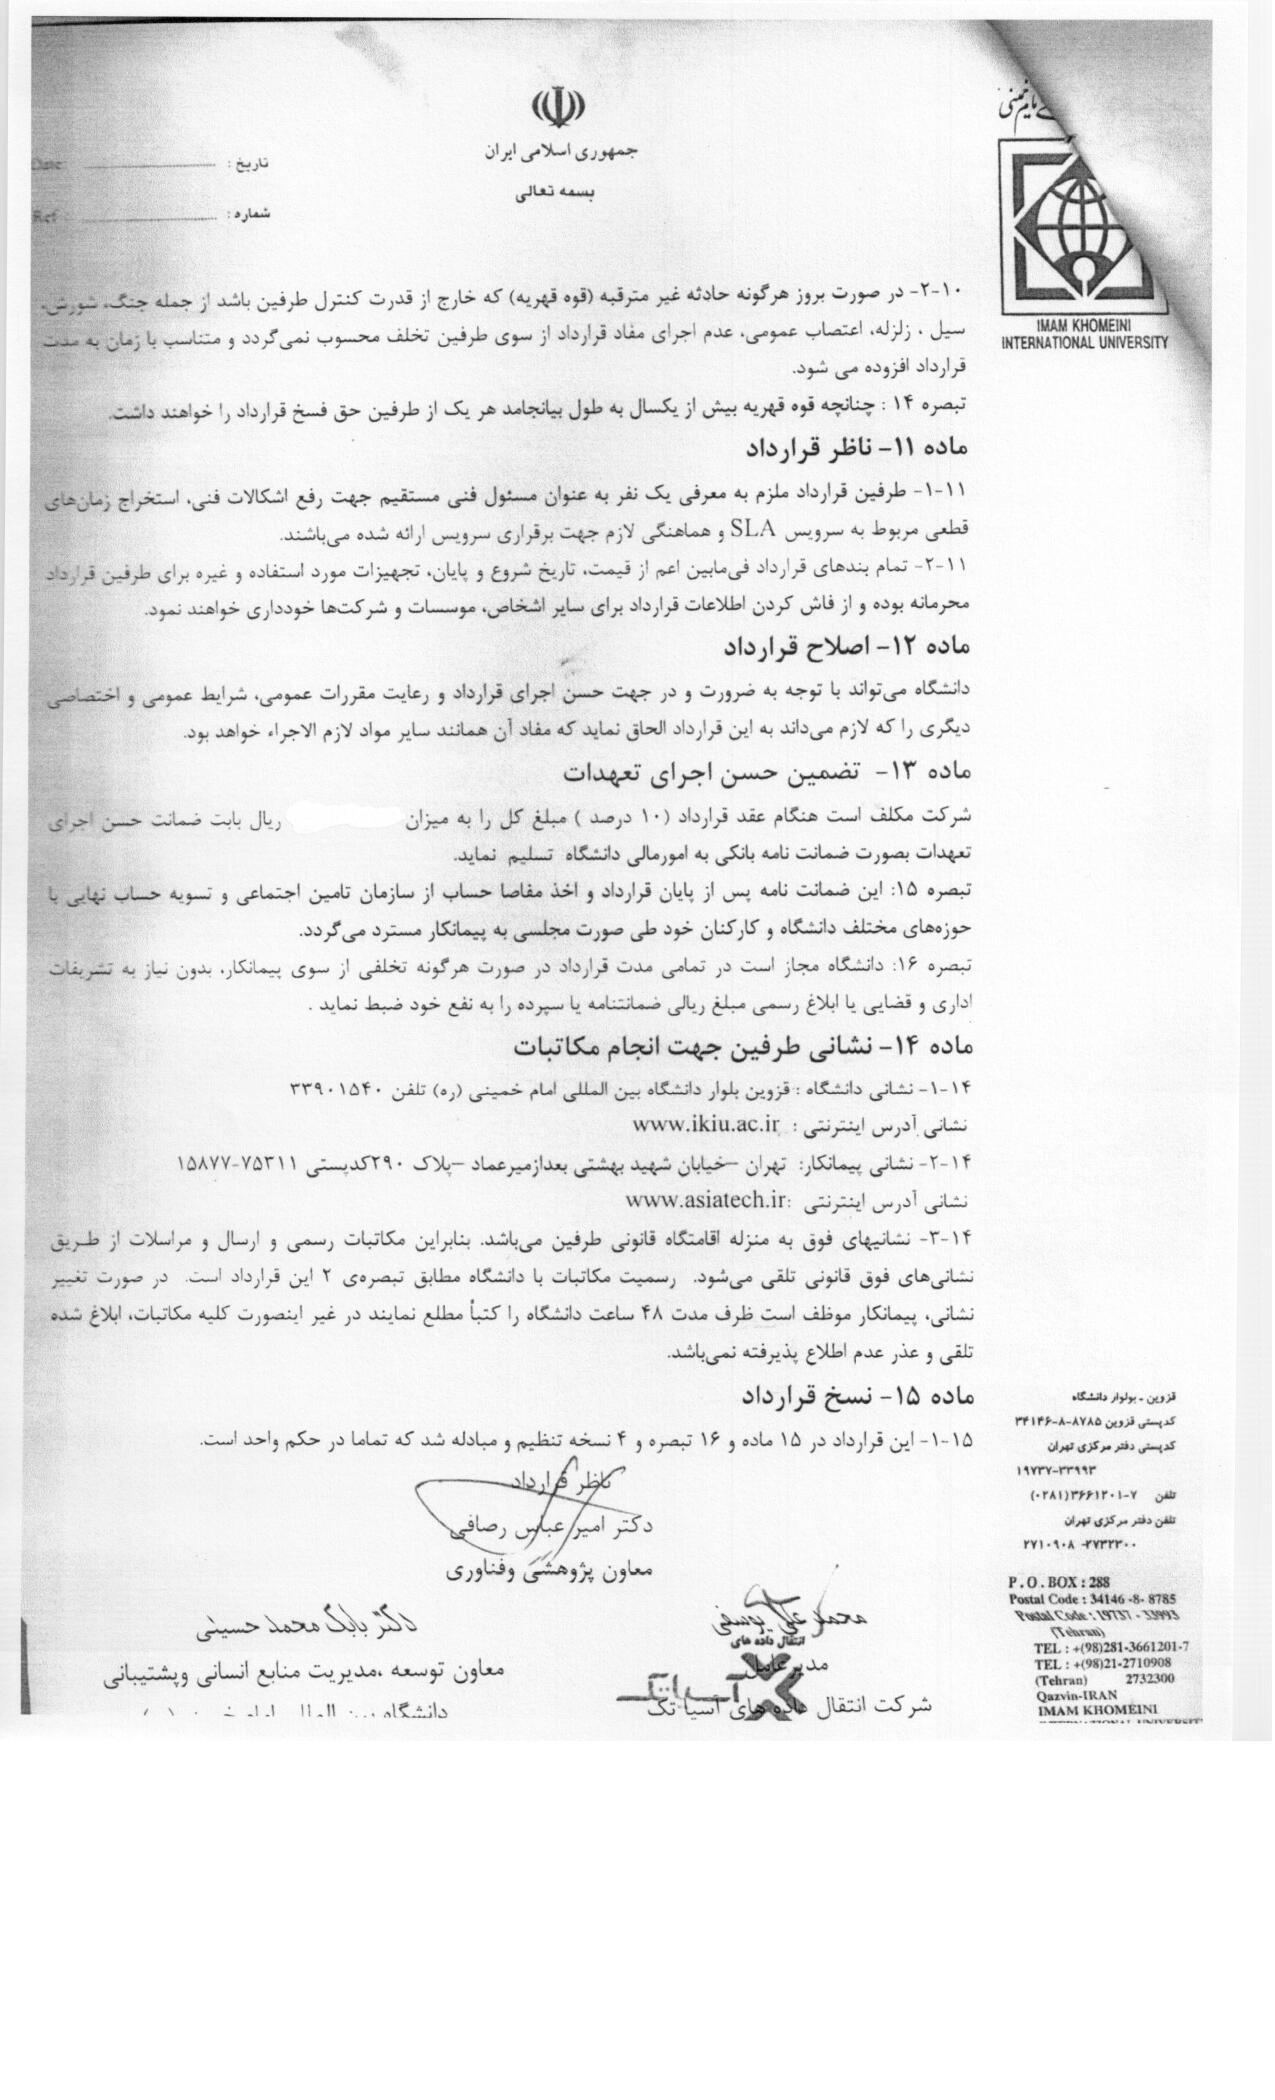 جمهوری اسلامی ایران
بسمه تعالی
تاریخ :
Date
شماره :
Ref :
IMAM KHOMEINI
INTERNATIONAL UNIVERSITY
۱۰-۲- در صورت بروز هرگونه حادثه غیر مترقبه (قوه قهریه) که خارج از قدرت کنترل طرفین باشد از جمله جنگ، شورش،
سیل ، زلزله، اعتصاب عمومی، عدم اجرای مفاد قرارداد از سوی طرفین تخلف محسوب نمی‌گردد و متناسب با زمان به مدت
قرارداد افزوده می شود.
تبصره ۱۴ : چنانچه قوه قهریه بیش از یکسال به طول بیانجامد هر یک از طرفین حق فسخ قرارداد را خواهند داشت.
ماده ۱۱- ناظر قرارداد
۱۱-۱- طرفین قرارداد ملزم به معرفی یک نفر به عنوان مسئول فنی مستقیم جهت رفع اشکالات فنی، استخراج زمان‌های
قطعی مربوط به سرویس SLA و هماهنگی لازم جهت برقراری سرویس ارائه شده می‌باشند.
۱۱-۲- تمام بندهای قرارداد فی‌مابین اعم از قیمت، تاریخ شروع و پایان، تجهیزات مورد استفاده و غیره برای طرفین قرارداد
محرمانه بوده و از فاش کردن اطلاعات قرارداد برای سایر اشخاص، موسسات و شرکت‌ها خودداری خواهند نمود.
ماده ۱۲- اصلاح قرارداد
دانشگاه می‌تواند با توجه به ضرورت و در جهت حسن اجرای قرارداد و رعایت مقررات عمومی، شرایط عمومی و اختصاصی
دیگری را که لازم می‌داند به این قرارداد الحاق نماید که مفاد آن همانند سایر مواد لازم الاجراء خواهد بود.
ماده ۱۳- تضمین حسن اجرای تعهدات
شرکت مکلف است هنگام عقد قرارداد (۱۰ درصد ) مبلغ کل را به میزان ریال بابت ضمانت حسن اجرای
تعهدات بصورت ضمانت نامه بانکی به امورمالی دانشگاه تسلیم نماید.
تبصره ۱۵: این ضمانت نامه پس از پایان قرارداد و اخذ مفاصا حساب از سازمان تامین اجتماعی و تسویه حساب نهایی با
حوزه‌های مختلف دانشگاه و کارکنان خود طی صورت مجلسی به پیمانکار مسترد می‌گردد.
تبصره ۱۶: دانشگاه مجاز است در تمامی مدت قرارداد در صورت هرگونه تخلفی از سوی پیمانکار، بدون نیاز به تشریفات
اداری و قضایی یا ابلاغ رسمی مبلغ ریالی ضمانتنامه یا سپرده را به نفع خود ضبط نماید .
ماده ۱۴- نشانی طرفین جهت انجام مکاتبات
۱۴-۱- نشانی دانشگاه : قزوین بلوار دانشگاه بین المللی امام خمینی (ره) تلفن ۳۳۹۰۱۵۴۰
نشانی آدرس اینترنتی : www.ikiu.ac.ir
۱۴-۲- نشانی پیمانکار: تهران –خیابان شهید بهشتی بعدازمیرعماد –پلاک ۲۹۰کدپستی ۷۵۳۱۱-۱۵۸۷۷
نشانی آدرس اینترنتی :www.asiatech.ir
۱۴-۳- نشانیهای فوق به منزله اقامتگاه قانونی طرفین می‌باشد. بنابراین مکاتبات رسمی و ارسال و مراسلات از طریق
نشانی‌های فوق قانونی تلقی می‌شود. رسمیت مکاتبات با دانشگاه مطابق تبصره‌ی ۲ این قرارداد است. در صورت تغییر
نشانی، پیمانکار موظف است ظرف مدت ۴۸ ساعت دانشگاه را کتباً مطلع نمایند در غیر اینصورت کلیه مکاتبات، ابلاغ شده
تلقی و عذر عدم اطلاع پذیرفته نمی‌باشد.
ماده ۱۵- نسخ قرارداد
۱۵-۱- این قرارداد در ۱۵ ماده و ۱۶ تبصره و ۴ نسخه تنظیم و مبادله شد که تماما در حکم واحد است.
ناظر قرارداد
دکتر امیر عباس رصافی
معاون پژوهشی وفناوری
محمد علی یوسفی
انتقال داده های
آسیاتک
مدیرعامل
شرکت انتقال داده های آسیا تک
دکتر بابک محمد حسینی
معاون توسعه ،مدیریت منابع انسانی وپشتیبانی
قزوین - بولوار دانشگاه
کدپستی قزوین ۸۷۸۵-۸-۳۴۱۴۶
کدپستی دفتر مرکزی تهران
۱۹۷۳۷-۳۳۹۹۳
تلفن ۷-۳۶۶۱۲۰۱(۰۲۸۱)
تلفن دفتر مرکزی تهران
۲۷۳۲۳۰۰- ۲۷۱۰۹۰۸
P.O.BOX : 288
Postal Code : 34146 -8- 8785
Postal Code : 19737 - 33993
(Tehran)
TEL : +(98)281-3661201-7
TEL : +(98)21-2710908
(Tehran) 2732300
Qazvin-IRAN
IMAM KHOMEINI